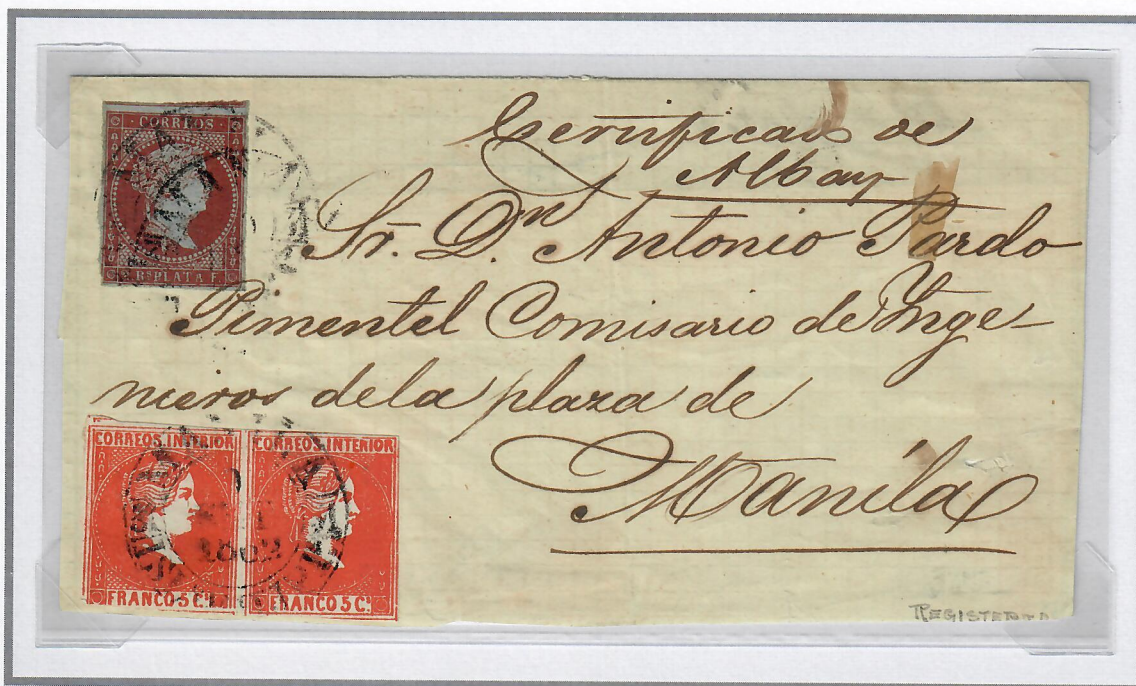 CORREOS
2 Rs PLATA F.
Certificado de
Albay
Sr. Dn Antonio Pardo
Pimentel Comisario de Ynge-
nieros dela plaza de
Manila
CORREOS INTERIOR
FRANCO 5 Cs
CORREOS INTERIOR
FRANCO 5 Cs
1862
REGISTERED